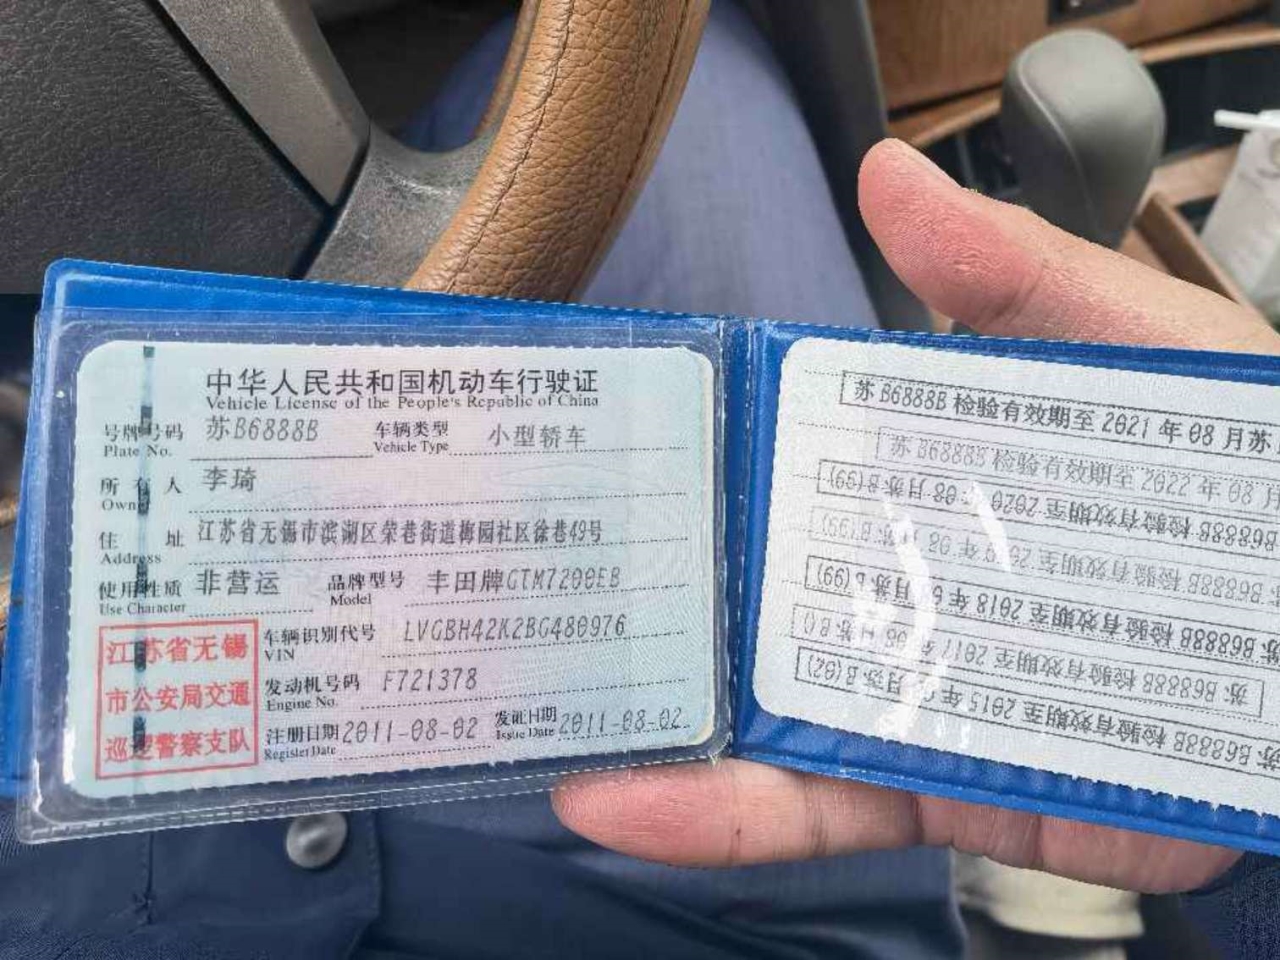 中华人民共和国机动车行驶证
Vehicle License of the People's Republic of China
号牌号码 苏B6888B 车辆类型 小型轿车
Plate No. Vehicle Type
所有人 李琦
Owner
住址 江苏省无锡市滨湖区荣巷街道梅园社区徐巷49号
Address
使用性质 非营运 品牌型号 丰田牌GTM7200EB
Use Character Model
江苏省无锡
市公安局交通
巡逻警察支队
车辆识别代号 LVGBH42K2BG480976
VIN
发动机号码 F721378
Engine No.
注册日期 2011-08-02 发证日期 2011-08-02
Register Date Issue Date
苏B6888B 检验有效期至 2021年08月苏
苏B6888B 检验有效期至 2022年08月
苏B6888B 检验有效期至 2020年08月苏B(99)
B6888B 检验有效期至
苏B6888B 检验有效期至 2018年
苏B6888B 检验有效期至 2017年
苏B6888B 检验有效期至 2015年